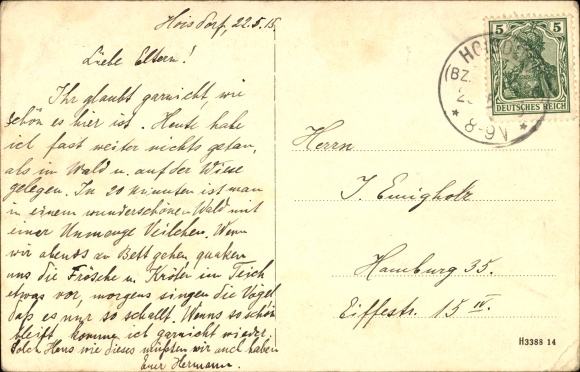 Hoisdorf, 22.5.15.
Liebe Eltern!
Ihr glaubt garnicht, wie
schön es hier ist. Heute habe
ich fast weiter nichts getan,
als im Wald u. auf der Wiese
gelegen. In 20 Minuten ist man
in einem wunderschönen Wald mit
einer Unmenge Veilchen. Wenn
wir abends zu Bett gehen quaken
uns die Frösche u. Kröten im Teich
etwas vor, morgens singen die Vögel
daß es nur so schallt. Wenns so schön
bleibt, komme ich garnicht wieder.
Solch Haus wie dieses müßten wir auch haben
Euer Hermann.
5 5
DEUTSCHES REICH
HOISDO
(BZ.
8-9N
Herrn
J. Emigholz
Hamburg 35.
Eiffestr. 15 IV.
H3388 14